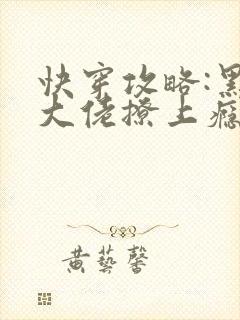 快穿攻略:黑
大佬撩上瘾
黄藝馨